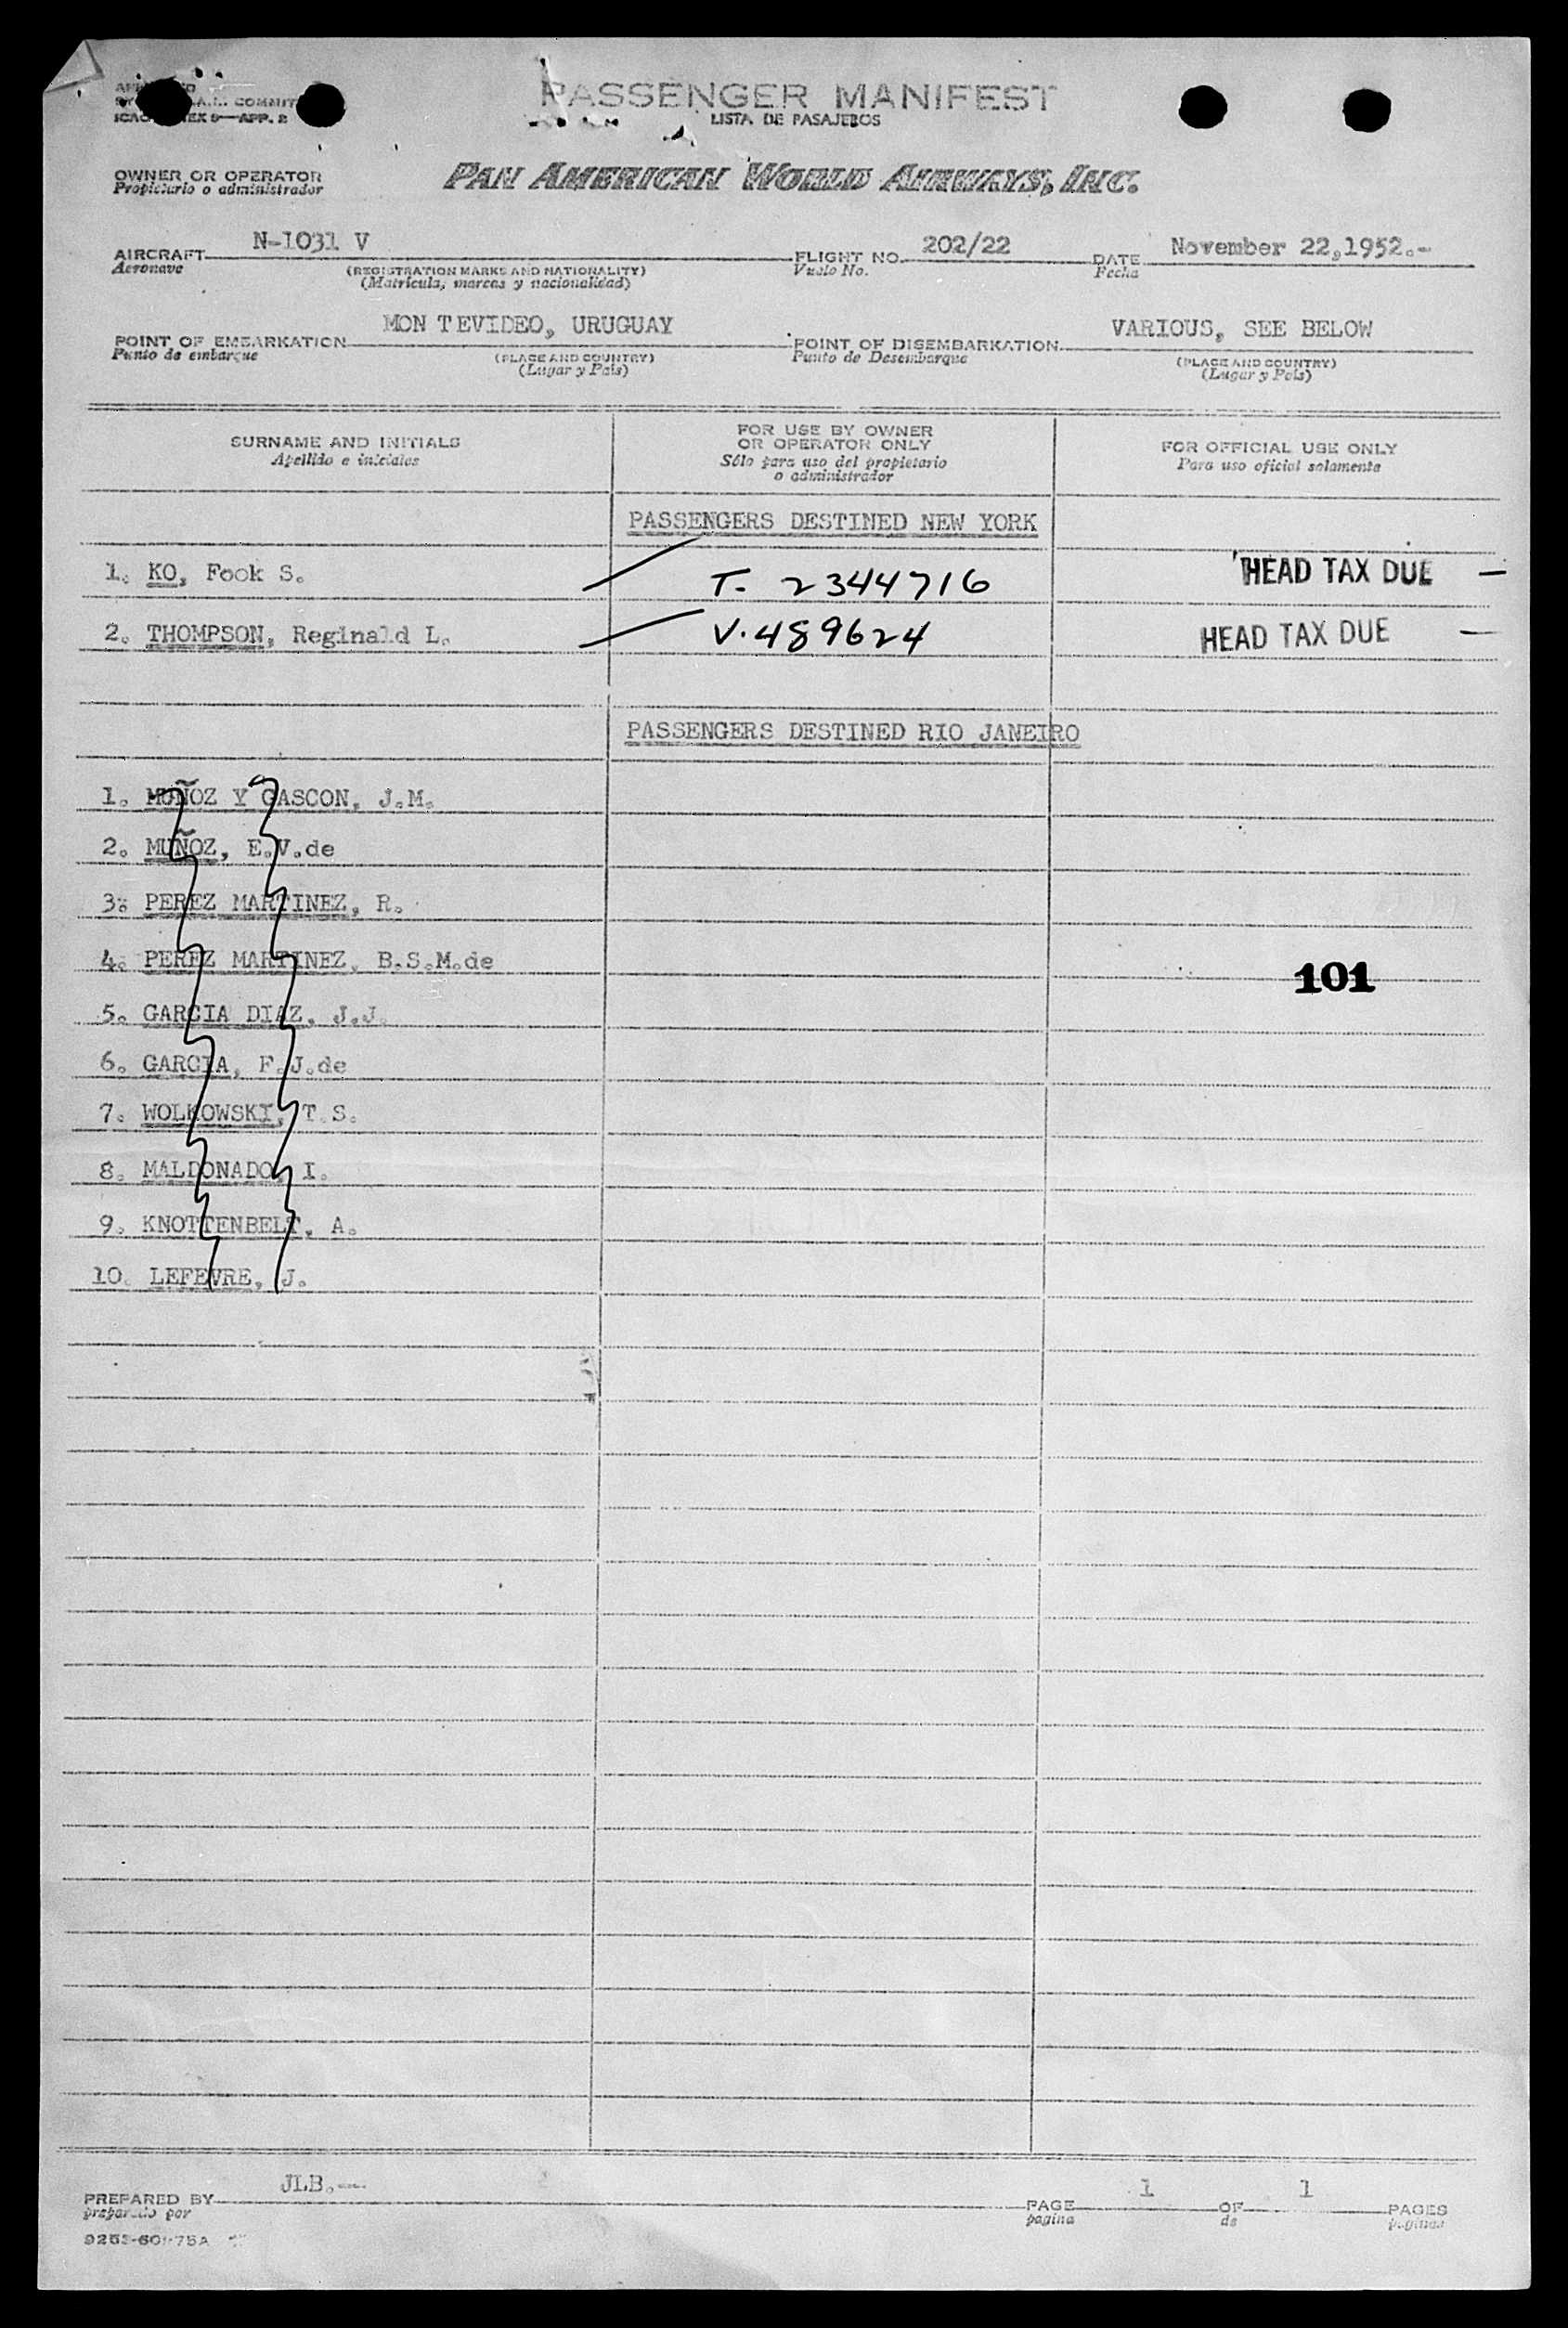 PASSENGER MANIFEST
LISTA DE PASAJEROS
COMMIT
ICAO 9—APP. 2
OWNER OR OPERATOR
Propietario o administrador
PAN AMERICAN WORLD AIRWAYS, INC.
AIRCRAFT N-1031 V FLIGHT NO. 202/22 DATE November 22,1952.-
Aeronave (REGISTRATION MARKS AND NATIONALITY) Vuelo No. Fecha
(Matricula, marcas y nacionalidad)
POINT OF EMBARKATION MON TEVIDEO, URUGUAY POINT OF DISEMBARKATION VARIOUS, SEE BELOW
Punto de embarque (PLACE AND COUNTRY) Punto de Desembarque (PLACE AND COUNTRY)
(Lugar y Pais) (Lugar y Pais)
SURNAME AND INITIALS
Apellido e iniciales
FOR USE BY OWNER
OR OPERATOR ONLY
Sólo para uso del propietario
o administrador
FOR OFFICIAL USE ONLY
Para uso oficial solamente
PASSENGERS DESTINED NEW YORK
1. KO, Fook S. T- 2344716 HEAD TAX DUE —
2. THOMPSON, Reginald L. V.489624 HEAD TAX DUE —
PASSENGERS DESTINED RIO JANEIRO
1. MUÑOZ Y GASCON, J.M.
2. MUÑOZ, E.V.de
3. PEREZ MARTINEZ, R.
4. PEREZ MARTINEZ, B.S.M.de
101
5. GARCIA DIAZ, J.J.
6. GARCIA, F.J.de
7. WOLKOWSKI, T.S.
8. MALDONADO, I.
9. KNOTTENBELT, A.
10. LEFEVRE, J.
PREPARED BY JLB.-- PAGE 1 OF 1 PAGES
preparado por pagina de paginas